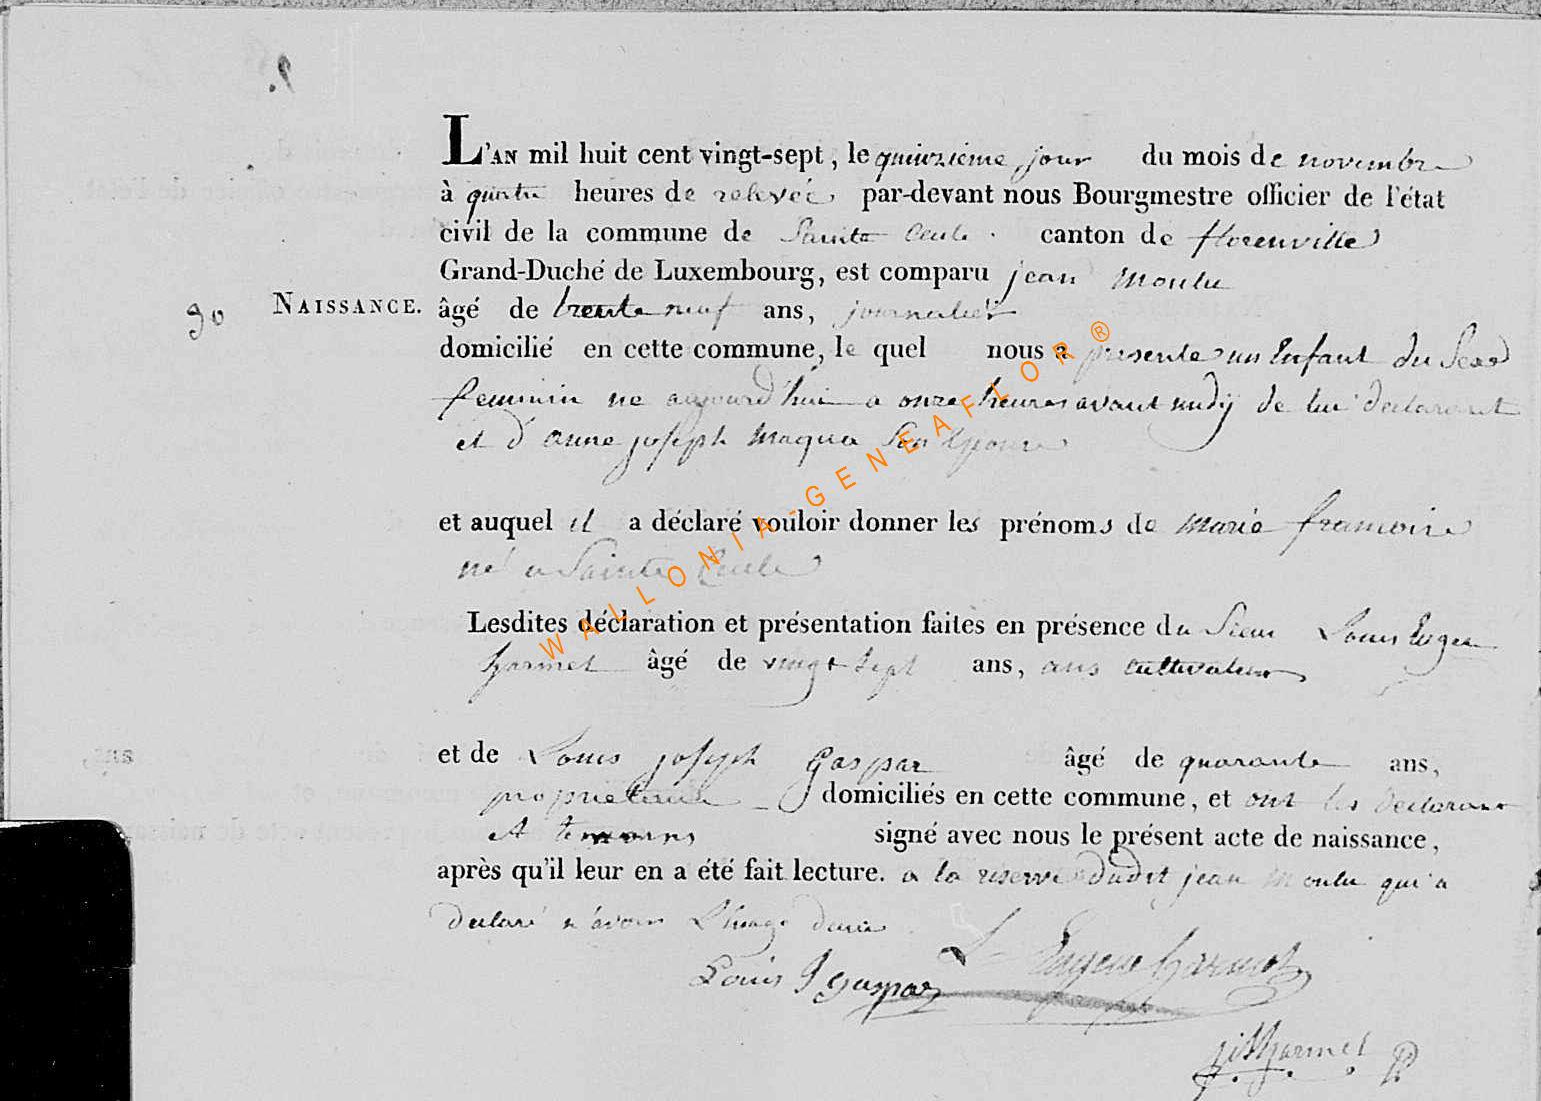 L'AN mil huit cent vingt-sept, le quinzieme jour du mois de novembre
à quatre heures de relevée par-devant nous Bourgmestre officier de l'état
civil de la commune de Sainte Cecile canton de florenville
Grand-Duché de Luxembourg, est comparu jean Moulu
90 NAISSANCE. âgé de trente neuf ans, journalier
domicilié en cette commune, le quel nous a presente un Enfant du Sexe
feminin ne aujourd'hui a onze heures avant midy de lui declarant
et d'anne joseph Maqua Son Epouse
et auquel il a déclaré vouloir donner les prénoms de Marie francoise
né a Sainte Cecile
Lesdites déclaration et présentation faites en présence du Sieur Louis Eugene
harmel âgé de vingt Sept ans, ans cultivateur
et de Louis joseph Gaspar âgé de quarante ans,
proprietaire domiciliés en cette commune, et ont les declarant
et temoins signé avec nous le présent acte de naissance,
après qu'il leur en a été fait lecture. a la reserve dudit jean Moulu qui a
declaré n'avoir L'usage
L Eugene harmel
Louis J Gaspar
harmel
WALLONIA-GENEAFLOR®